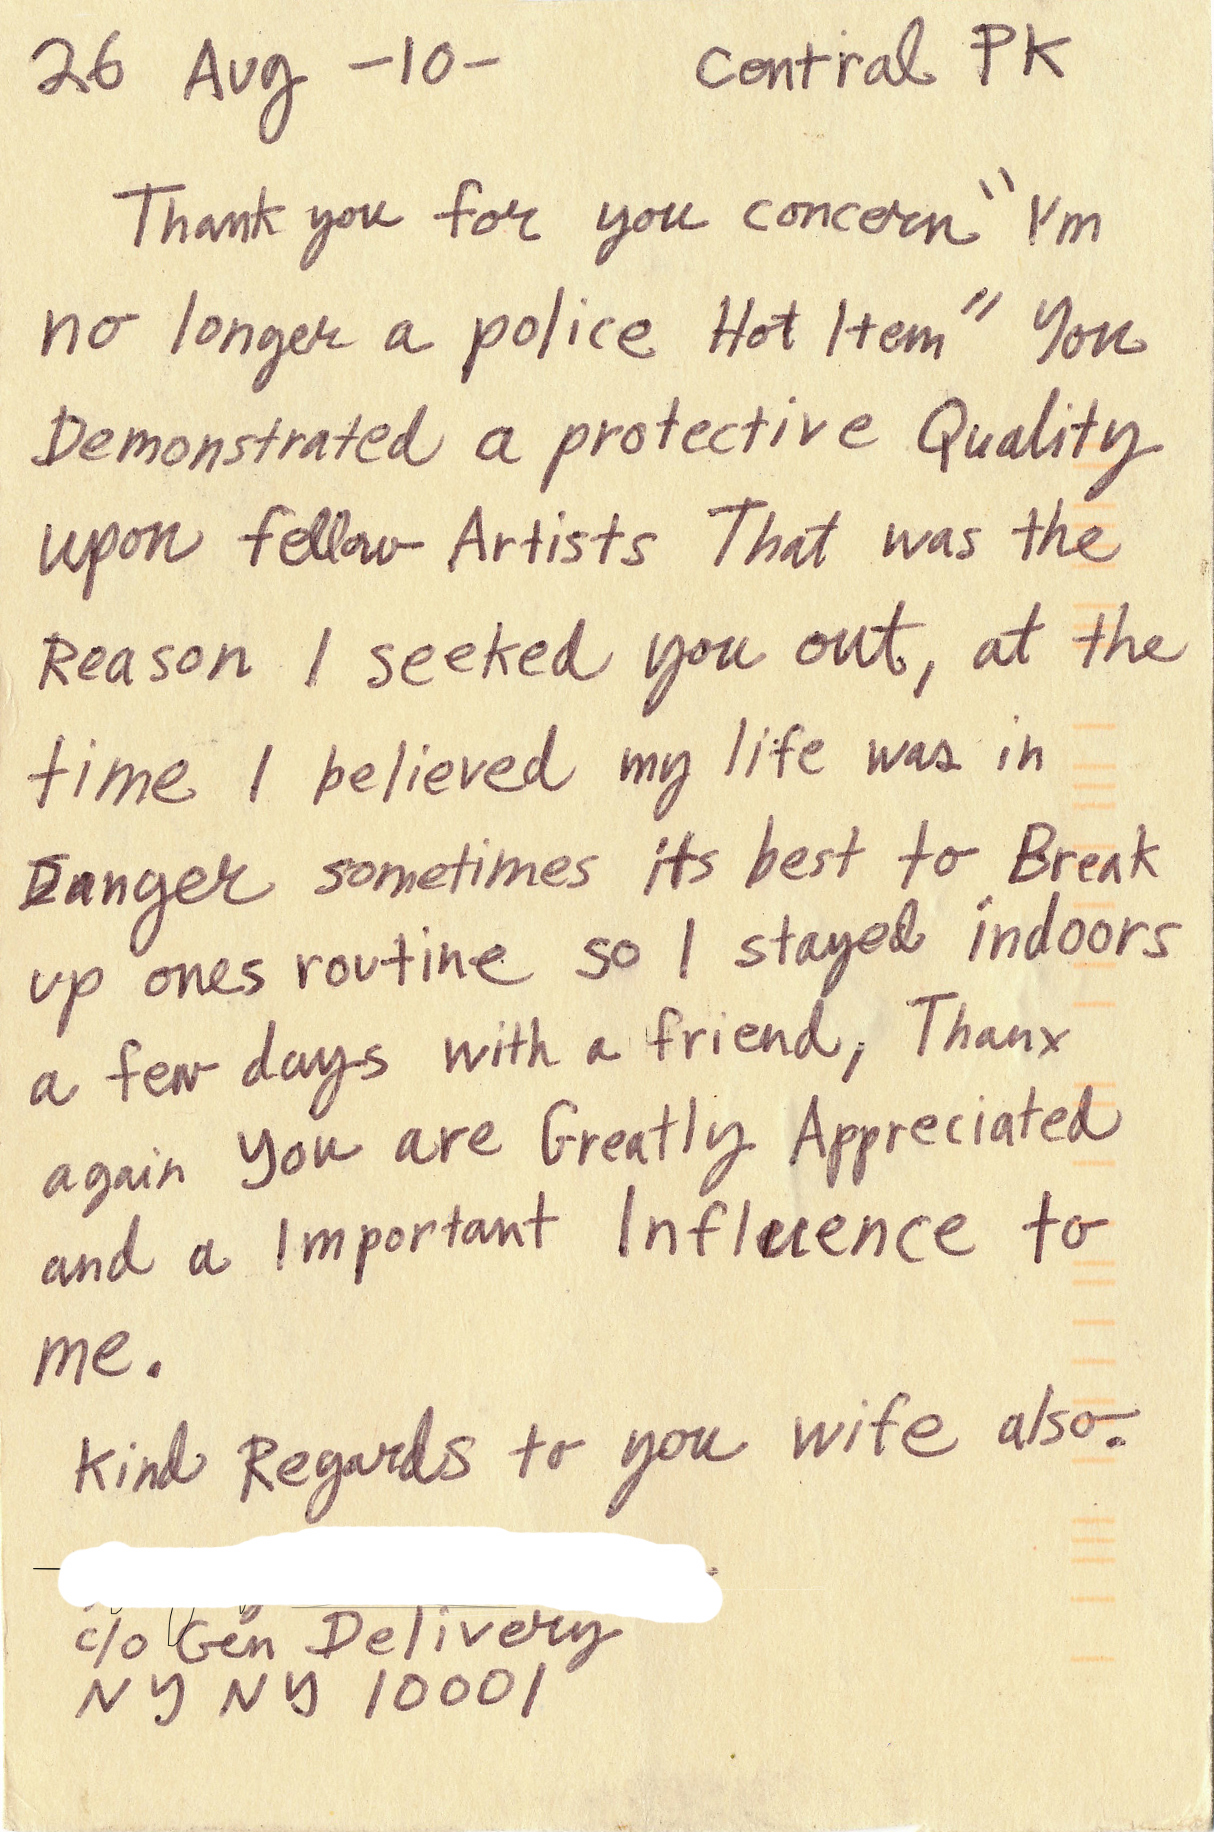 26 Aug -10- Central PK
Thank you for you concern "I'm
no longer a police Hot Item" You
Demonstrated a protective Quality
upon fellow Artists That was the
Reason I seeked you out, at the
time I believed my life was in
Danger sometimes its best to Break
up ones routine so I stayed indoors
a few days with a friend, Thanx
again You are Greatly Appreciated
and a Important Influence to
me.
Kind Regards to you wife also.
c/o Gen Delivery
NY NY 10001